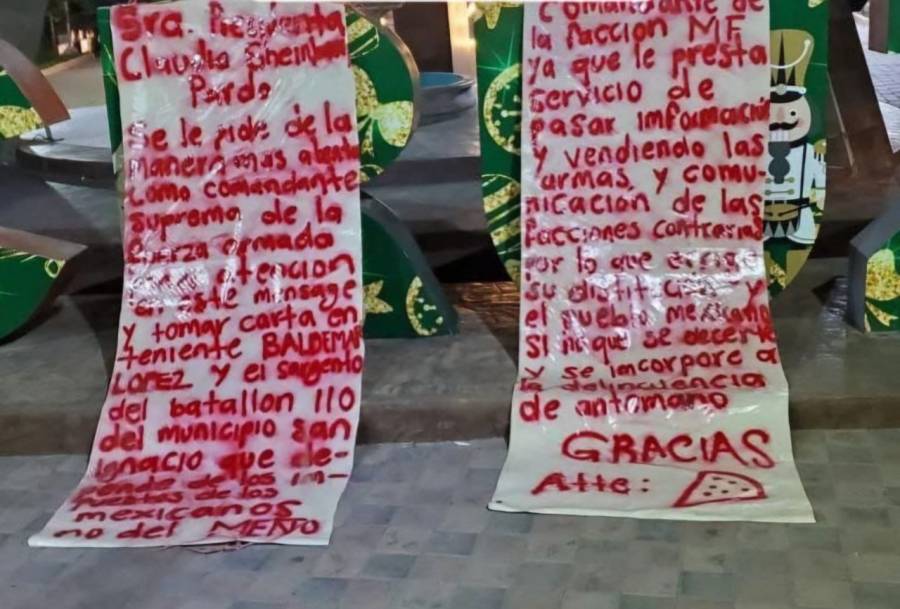 Sra. Presidenta
Claudia Sheinbaum
Pardo
Se le pide de la
manera mas atenta
como comandante
suprema de la
fuerza armada
atencion
en este mensage
y tomar carta en
teniente BALDEMAR
LOPEZ y el sargento
del batallon 110
del municipio san
ignacio que de-
pende de los im-
puestos de los
mexicanos
no del MENTO
comandante de
la faccion MF
ya que le presta
servicio de
pasar informacion
y vendiendo las
armas y comu-
nicacion de las
facciones contrarias
por lo que exige
su distitucion y
el pueblo mexicano
si no que se decerte
y se incorpore a
la delincuencia
de antomano
GRACIAS
Atte: